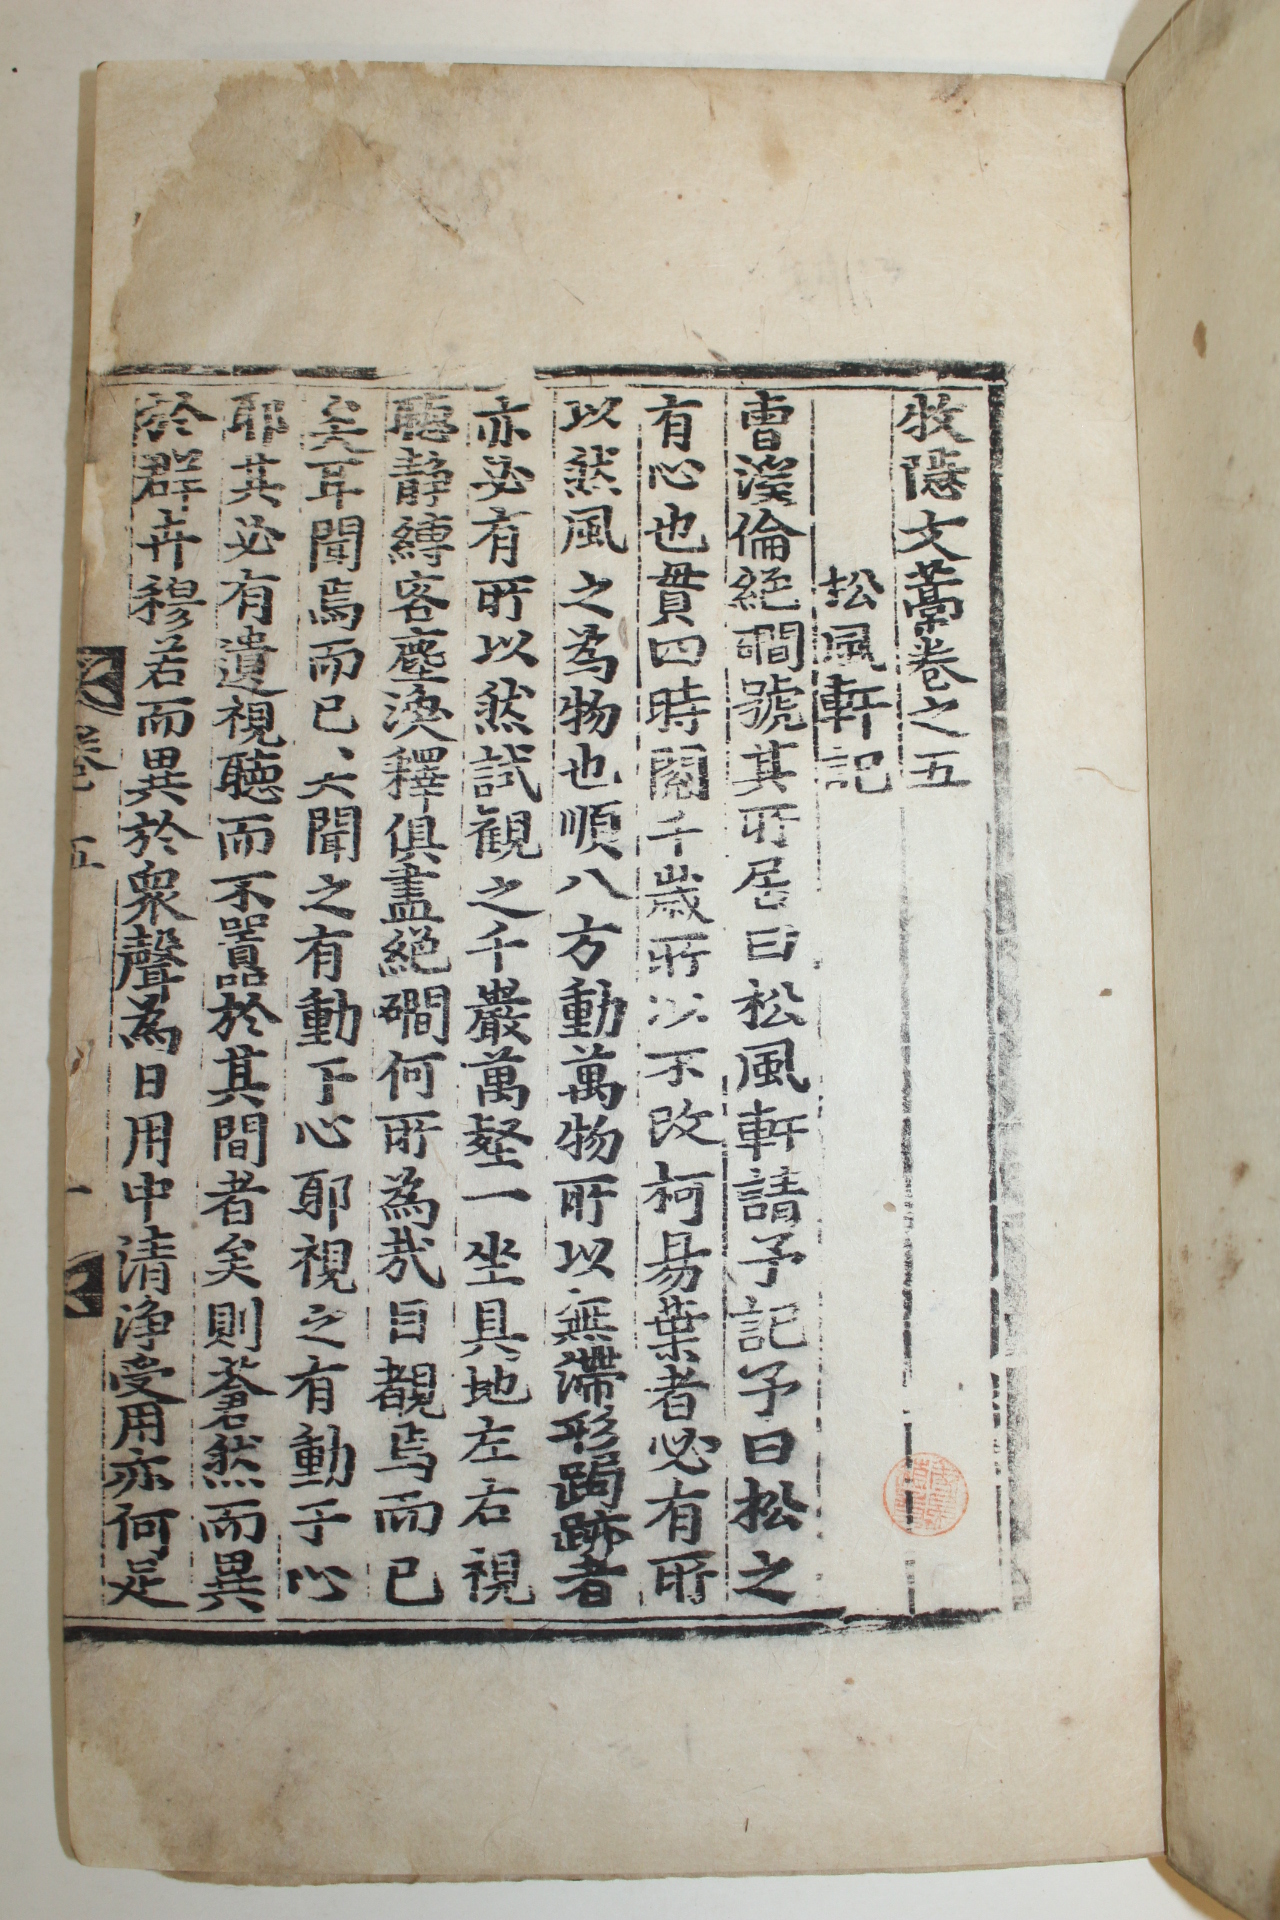 牧隱文藁卷之五
松風軒記
曹溪倫絕磵號其所居曰松風軒請予記予曰松之
有心也貫四時閱千歲所以不改柯易葉者必有所
以然風之為物也順八方動萬物所以無滯形跼跡者
亦必有所以然試觀之千巖萬壑一坐具地左右視
聽靜縛客塵渙釋俱盡絕磵何所為哉目覩焉而已
矣耳聞焉而已矣聞之有動于心耶視之有動于心
耶其必有遺視聽而不囂於其間者矣則蒼然而異
於群卉穆若而異於衆聲為日用中清淨受用亦何足
卷五
一